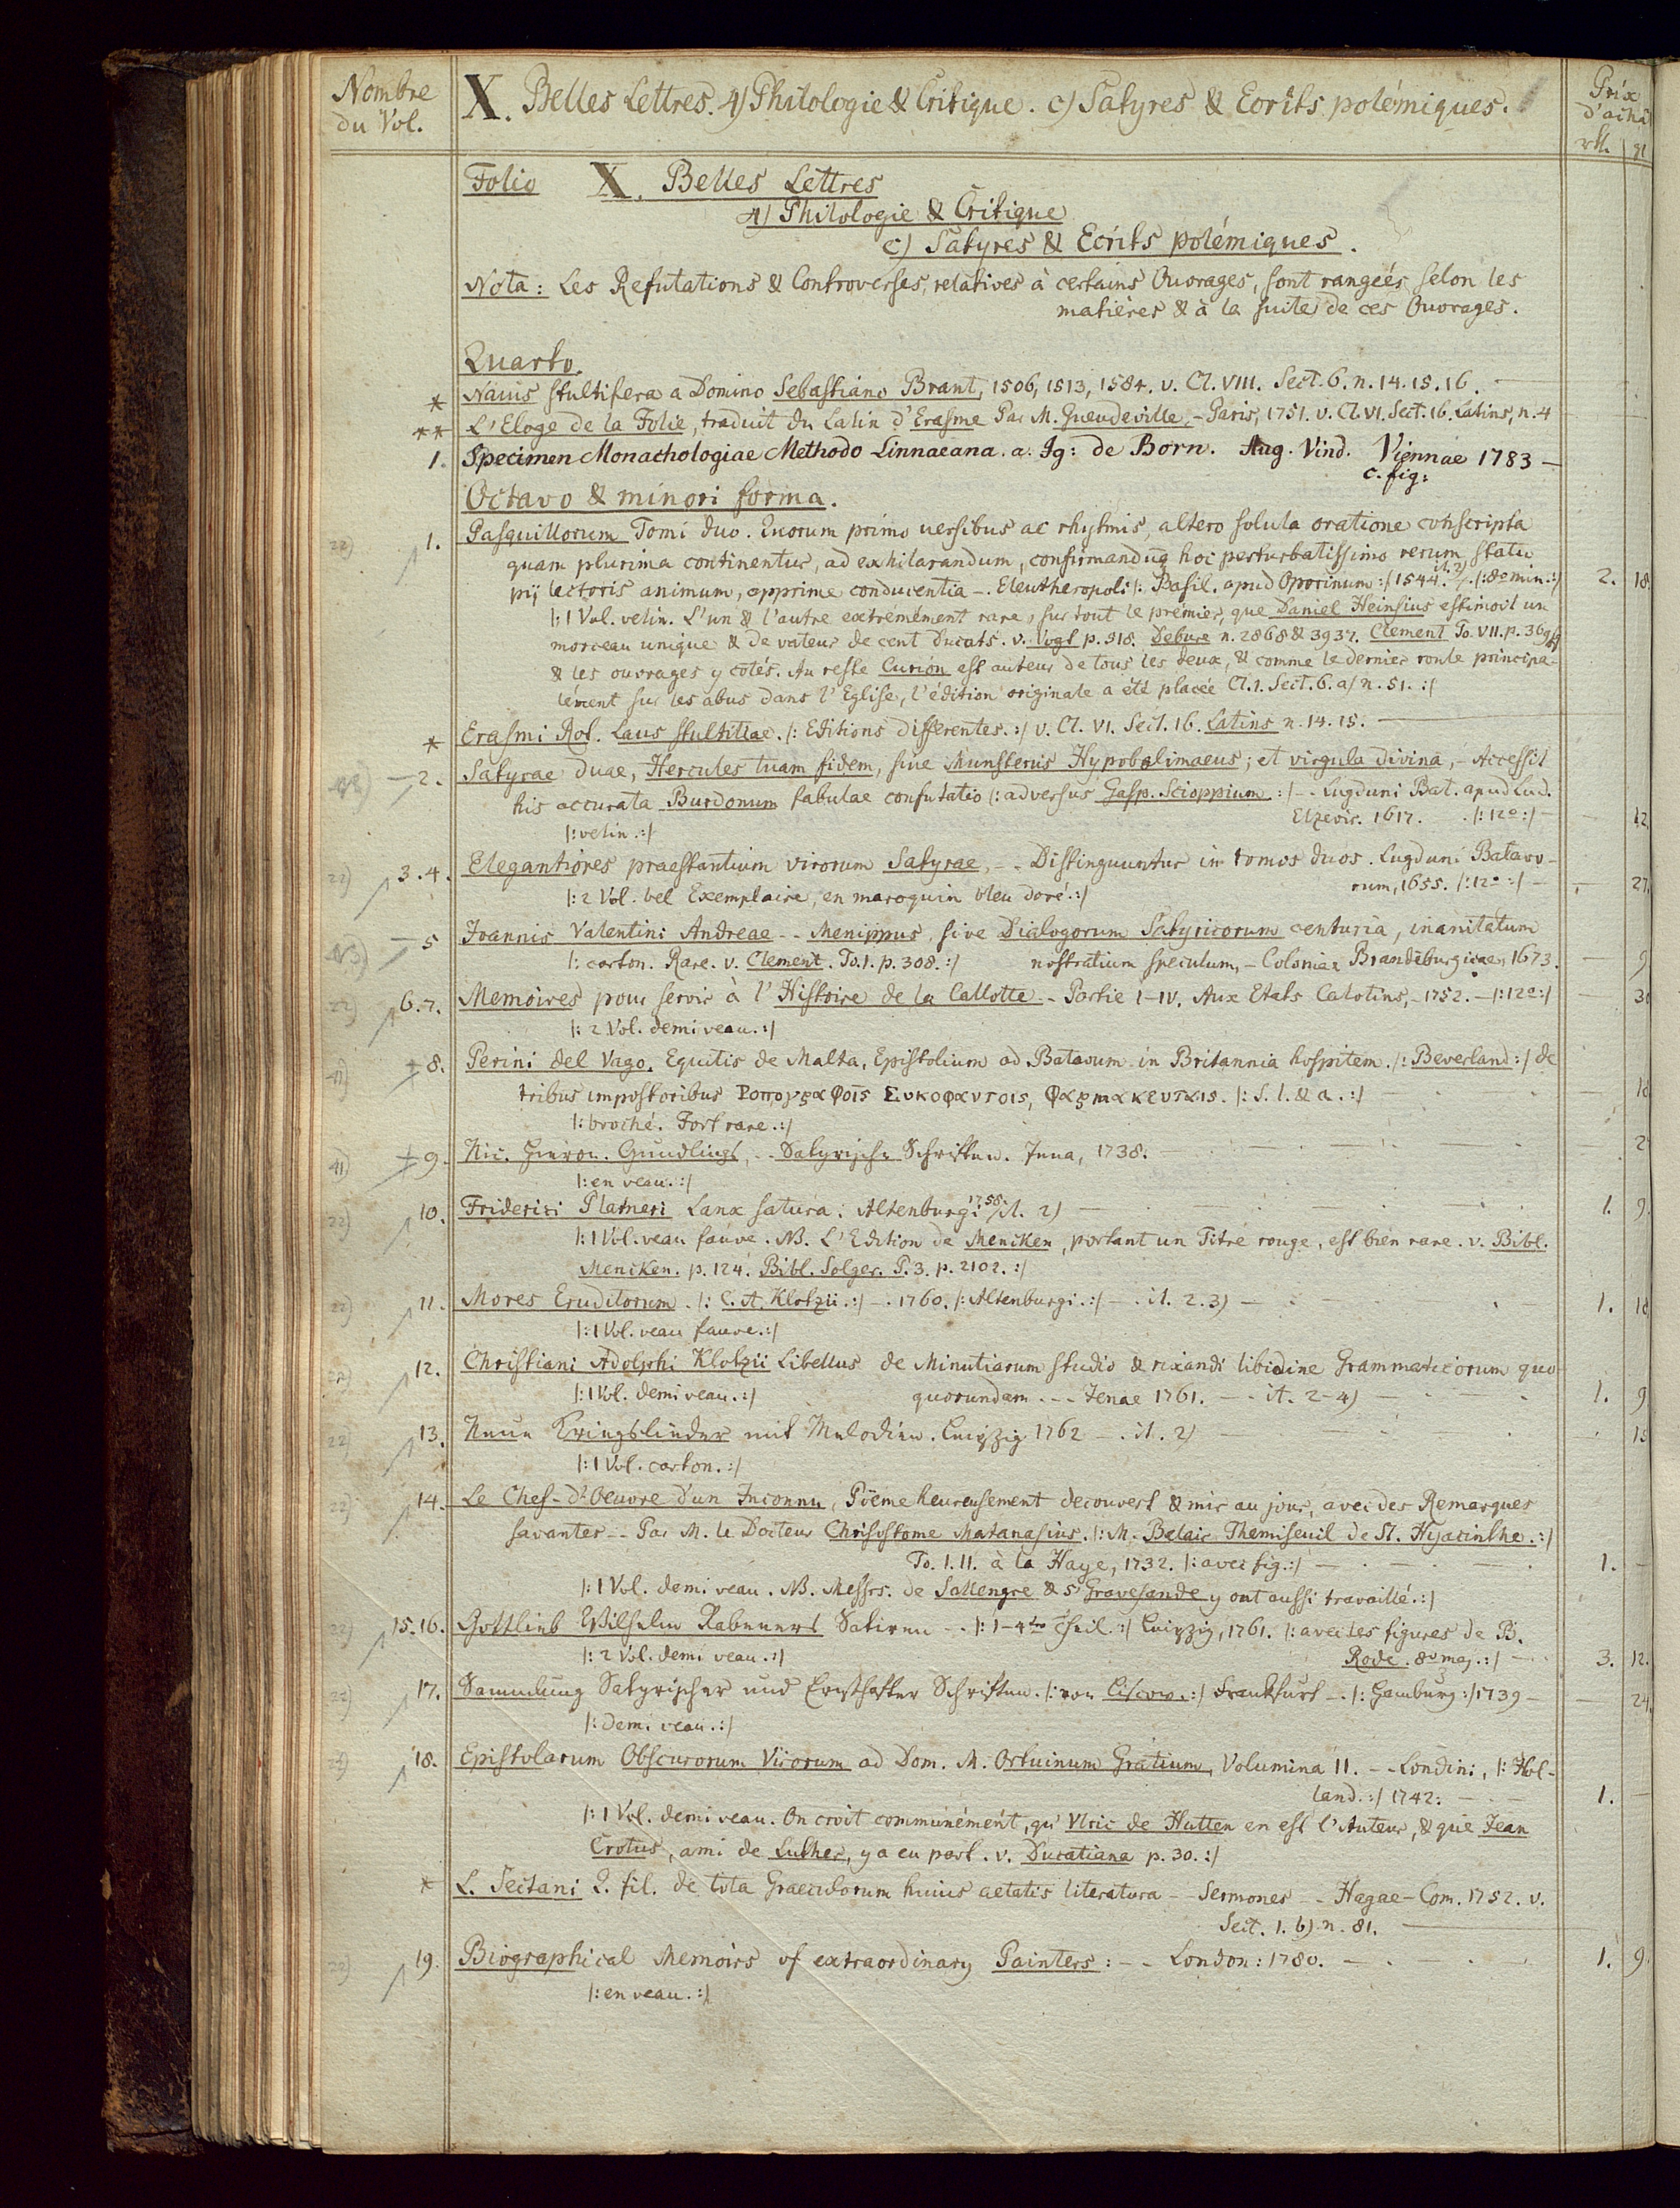 Nombre
du Vol.
X. Belles Lettres. 4) Philologie & Critique. c) Satyres & Ecrits polémiques.
Prix
d'achat
rtl. | gl
Folio X. Belles Lettres
4) Philologie & Critique
c) Satyres & Ecrits polémiques.
Nota: Les Refutations & Controverses, relatives à certains Ouvrages, sont rangées selon les
matières & à la suite de ces Ouvrages.
Quarto.
* Nauis stultifera a Domino Sebastiano Brant, 1506, 1513, 1584. v. Cl. VIII. Sect. 6. n. 14. 15. 16. —
** L'Eloge de la Folie, traduit du Latin d'Erasme Par M. Gueudeville, - Paris, 1751. v. Cl. VI. Sect. 16. Latins, n. 4
1. Specimen Monachologiae Methodo Linnaeana. a. Ig: de Born. Aug. Vind. Viennae 1783 —
c. fig:
Octavo & minori forma.
22) 1. Pasquillorum Tomi duo. Quorum primo uersibus ac rhytmis, altero soluta oratione conscripta
quam plurima continentur, ad exhilarandum, confirmandūq hoc perturbatissimo rerum statu
pij lectoris animum, apprime conducentia -. Eleutheropoli |: Basil. apud Oporinum :| 1544. it. 2) |: 8º min. :| 2. 18
|: 1 Vol. velin. L'un & l'autre extrémément rare, sur tout le prémier, que Daniel Heinsius estimoit un
morceau unique & de valeur de cent Ducats. v. Vogt p. 318. Debure n. 2868 & 3937. Clement To. VII. p. 369
& les ouvrages y cotés. Au reste Curion est auteur de tous les deux, & comme le dernier roule principa-
lément sur les abus dans l'Eglise, l'édition originale a été placée Cl. 1. Sect. 6. a) n. 51. :|
* Erasmi Rot. Laus stultitiae. |: Editions differentes. :| v. Cl. VI. Sect. 16. Latins n. 14. 15. —
2. Satyrae duae, Hercules tuam fidem, siue Munsterus Hypobolimaeus; et virgula divina, - Accessit
his accurata Burdonum fabulae confutatio |: adversus Gasp. Scioppium :| -. Lugduni Bat. apud Lud.
Elzevir. 1617. |: 12º :| — 12
|: velin. :|
22) 3. 4. Elegantiores praestantium virorum Satyrae, -- Distinguuntur in tomos duos. Lugduni Batavo-
rum, 1655. |: 12º :| — 27.
|: 2 Vol. bel Exemplaire, en maroquin bleu doré. :|
5 Joannis Valentini Andreae -- Menippus, sive Dialogorum Satyricorum centuria, inanitatum
|: carton. Rare. v. Clement. To. 1. p. 308. :| nostratium speculum, - Coloniae Brandeburgicae, 1673. — 9
22) 6. 7. Memoires pour servir à l'Histoire de la Callotte - Partie I-IV. Aux Etats Calotins, - 1752. - |: 12º :| — 30
|: 2 Vol. demi veau. :|
41) 8. Perini del Vago, Equitis de Malta, Epistolium ad Batavum in Britannia hospitem. |: Beverland :| de
tribus impostoribus Ροπογραφοις Συκοφαντοις, Φαρμακευταις. |: S. l. & a. :| — 18
|: broché. Fort rare. :|
41) 9. Nic. Hieron. Gundlings, -- Satyrische Schriften. Jena, 1738. — 2
|: en veau. :|
22) 10. Friderici Platneri Lanx satura. Altenburgi 1758 it. 2) — 1. 9.
|: 1 Vol. veau fauve. NB. L'Edition de Mencken, portant un Titre rouge, est bien rare. v. Bibl.
Mencken. p. 124. Bibl. Solger. P. 3. p. 2102. :|
22) 11. Mores Eruditorum. |: C. A. Klotzii. :| -. 1760. |: Altenburgi. :| -. it. 2. 3) — 1. 18
|: 1 Vol. veau fauve. :|
22) 12. Christiani Adolphi Klotzii Libellus de Minutiarum studio & rixandi libidine Grammaticorum quo-
|: 1 Vol. demi veau. :| quorundam. -- Jenae 1761. -- it. 2-4) — 1. 9
22) 13. Neue Kriegslieder mit Melodien. Leipzig 1762 -. it. 2) — 15
|: 1 Vol. carton. :|
22) 14. Le Chef-d'Oeuvre d'un Inconnu, Poëme heureusement decouvert & mis au jour, avec des Remarques
savantes -- Par M. le Docteur Chrisostome Matanasius. |: M. Belair Themiseuil de St. Hyacinthe. :|
To. I. II. à la Haye, 1732. |: avec fig. :| — 1. —
|: 1 Vol. demi veau. NB. Messrs. de Sallengre & s'Gravesande y ont aussi travaillé. :|
22) 15. 16. Gottlieb Wilhelm Rabeners Satiren -. |: 1-4ter Theil. :| Leipzig, 1761. |: avec les figures de B.
|: 2 Vol. demi veau. :| Rode. 8º maj. :| — 3. 12.
22) 17. Sammlung Satyrischer und Ernsthafter Schriften. |: von Liscow. :| Frankfurt -. |: Hamburg :| 1739 — 24.
|: demi veau. :|
22) 18. Epistolarum Obscurorum Virorum ad Dom. M. Ortuinum Gratium, Volumina II. -- Londini, |: Hol-
land. :| 1742. — 1. —
|: 1 Vol. demi veau. On croit communément, qu'Ulric de Hutten en est l'Auteur, & que Jean
Crotus, ami de Luther, y a eu part. v. Ducatiana p. 30. :|
* L. Sectani Q. fil. de tota Graeculorum huius aetatis literatura -- Sermones -- Hagae-Com. 1752. v.
Sect. 1. b) n. 81. —
22) 19. Biographical Memoirs of extraordinary Painters: -- London: 1780. — 1. 9.
|: en veau. :|